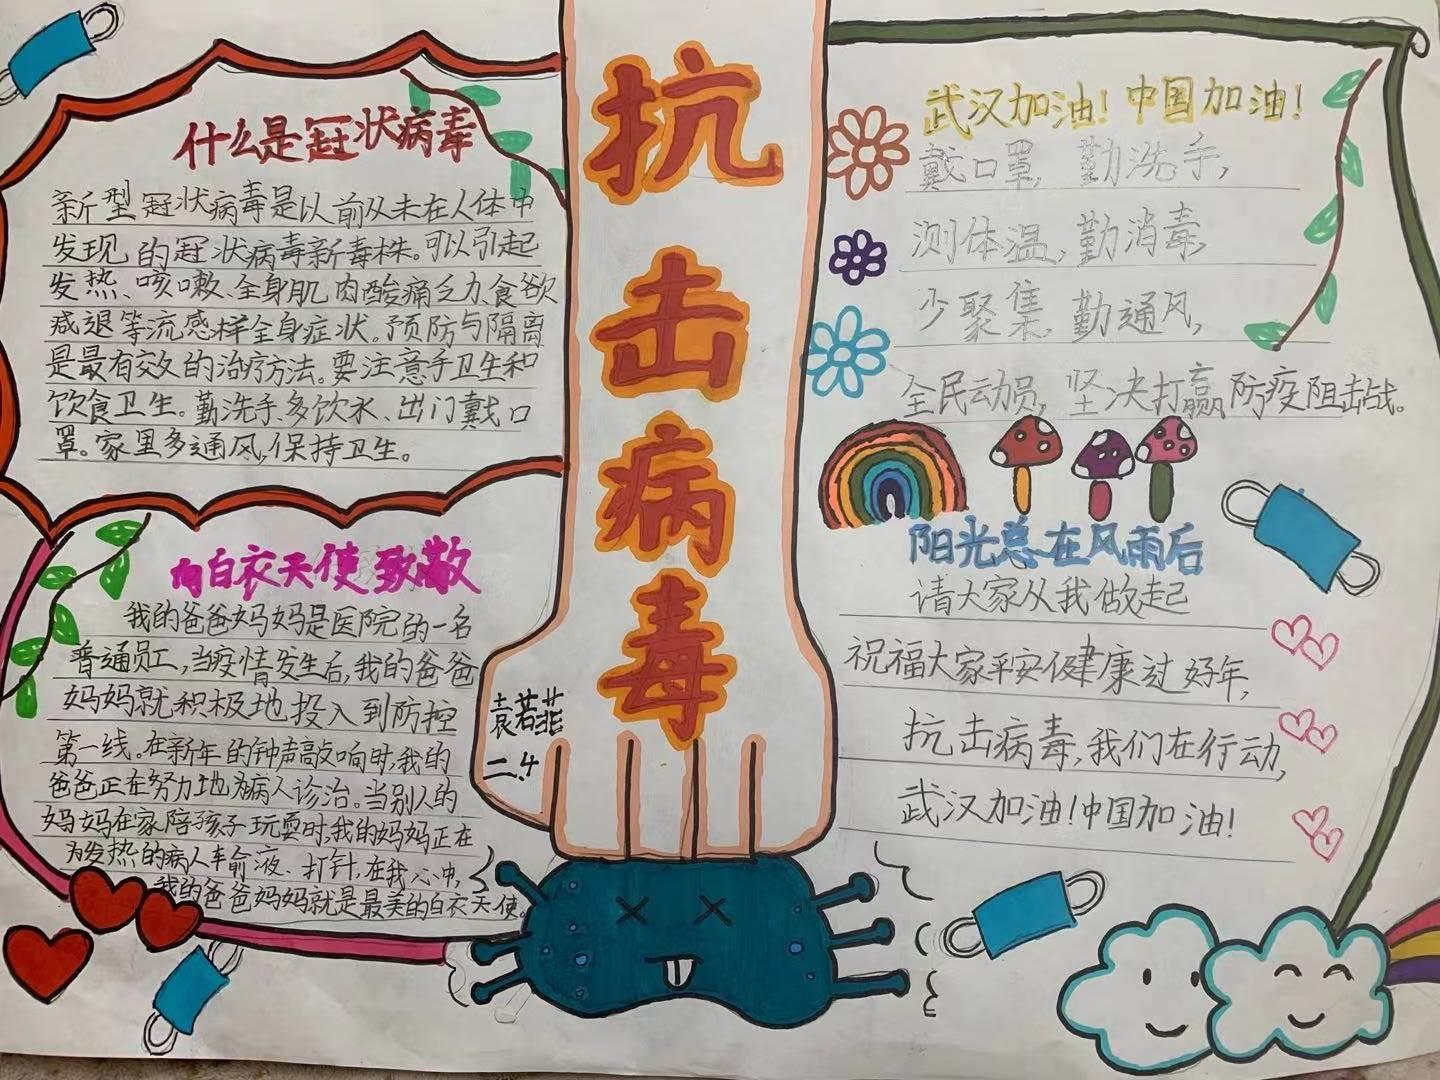 抗击病毒
什么是冠状病毒
新型冠状病毒是以前从未在人体中
发现的冠状病毒新毒株。可以引起
发热、咳嗽、全身肌肉酸痛乏力、食欲
减退等流感样全身症状。预防与隔离
是最有效的治疗方法。要注意手卫生和
饮食卫生。勤洗手、多饮水、出门戴口
罩。家里多通风,保持卫生。
向白衣天使致敬
我的爸爸妈妈是医院的一名
普通员工,当疫情发生后,我的爸爸
妈妈就积极地投入到防控
第一线。在新年的钟声敲响时,我的
爸爸正在努力地为病人诊治。当别人的
妈妈在家陪孩子玩耍时,我的妈妈正在
为发热的病人输液、打针,在我心中,
我的爸爸妈妈就是最美的白衣天使。
袁若菲
二.4
武汉加油!中国加油!
戴口罩,勤洗手,
测体温,勤消毒,
少聚集,勤通风,
全民动员,坚决打赢防疫阻击战。
阳光总在风雨后
请大家从我做起
祝福大家平安健康过好年,
抗击病毒,我们在行动,
武汉加油!中国加油!